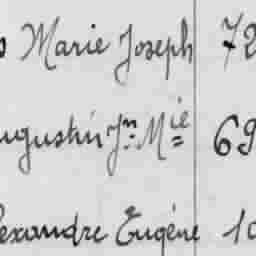 s Marie Joseph 72
ugustin Jn. Mie 69
exandre Eugène 10